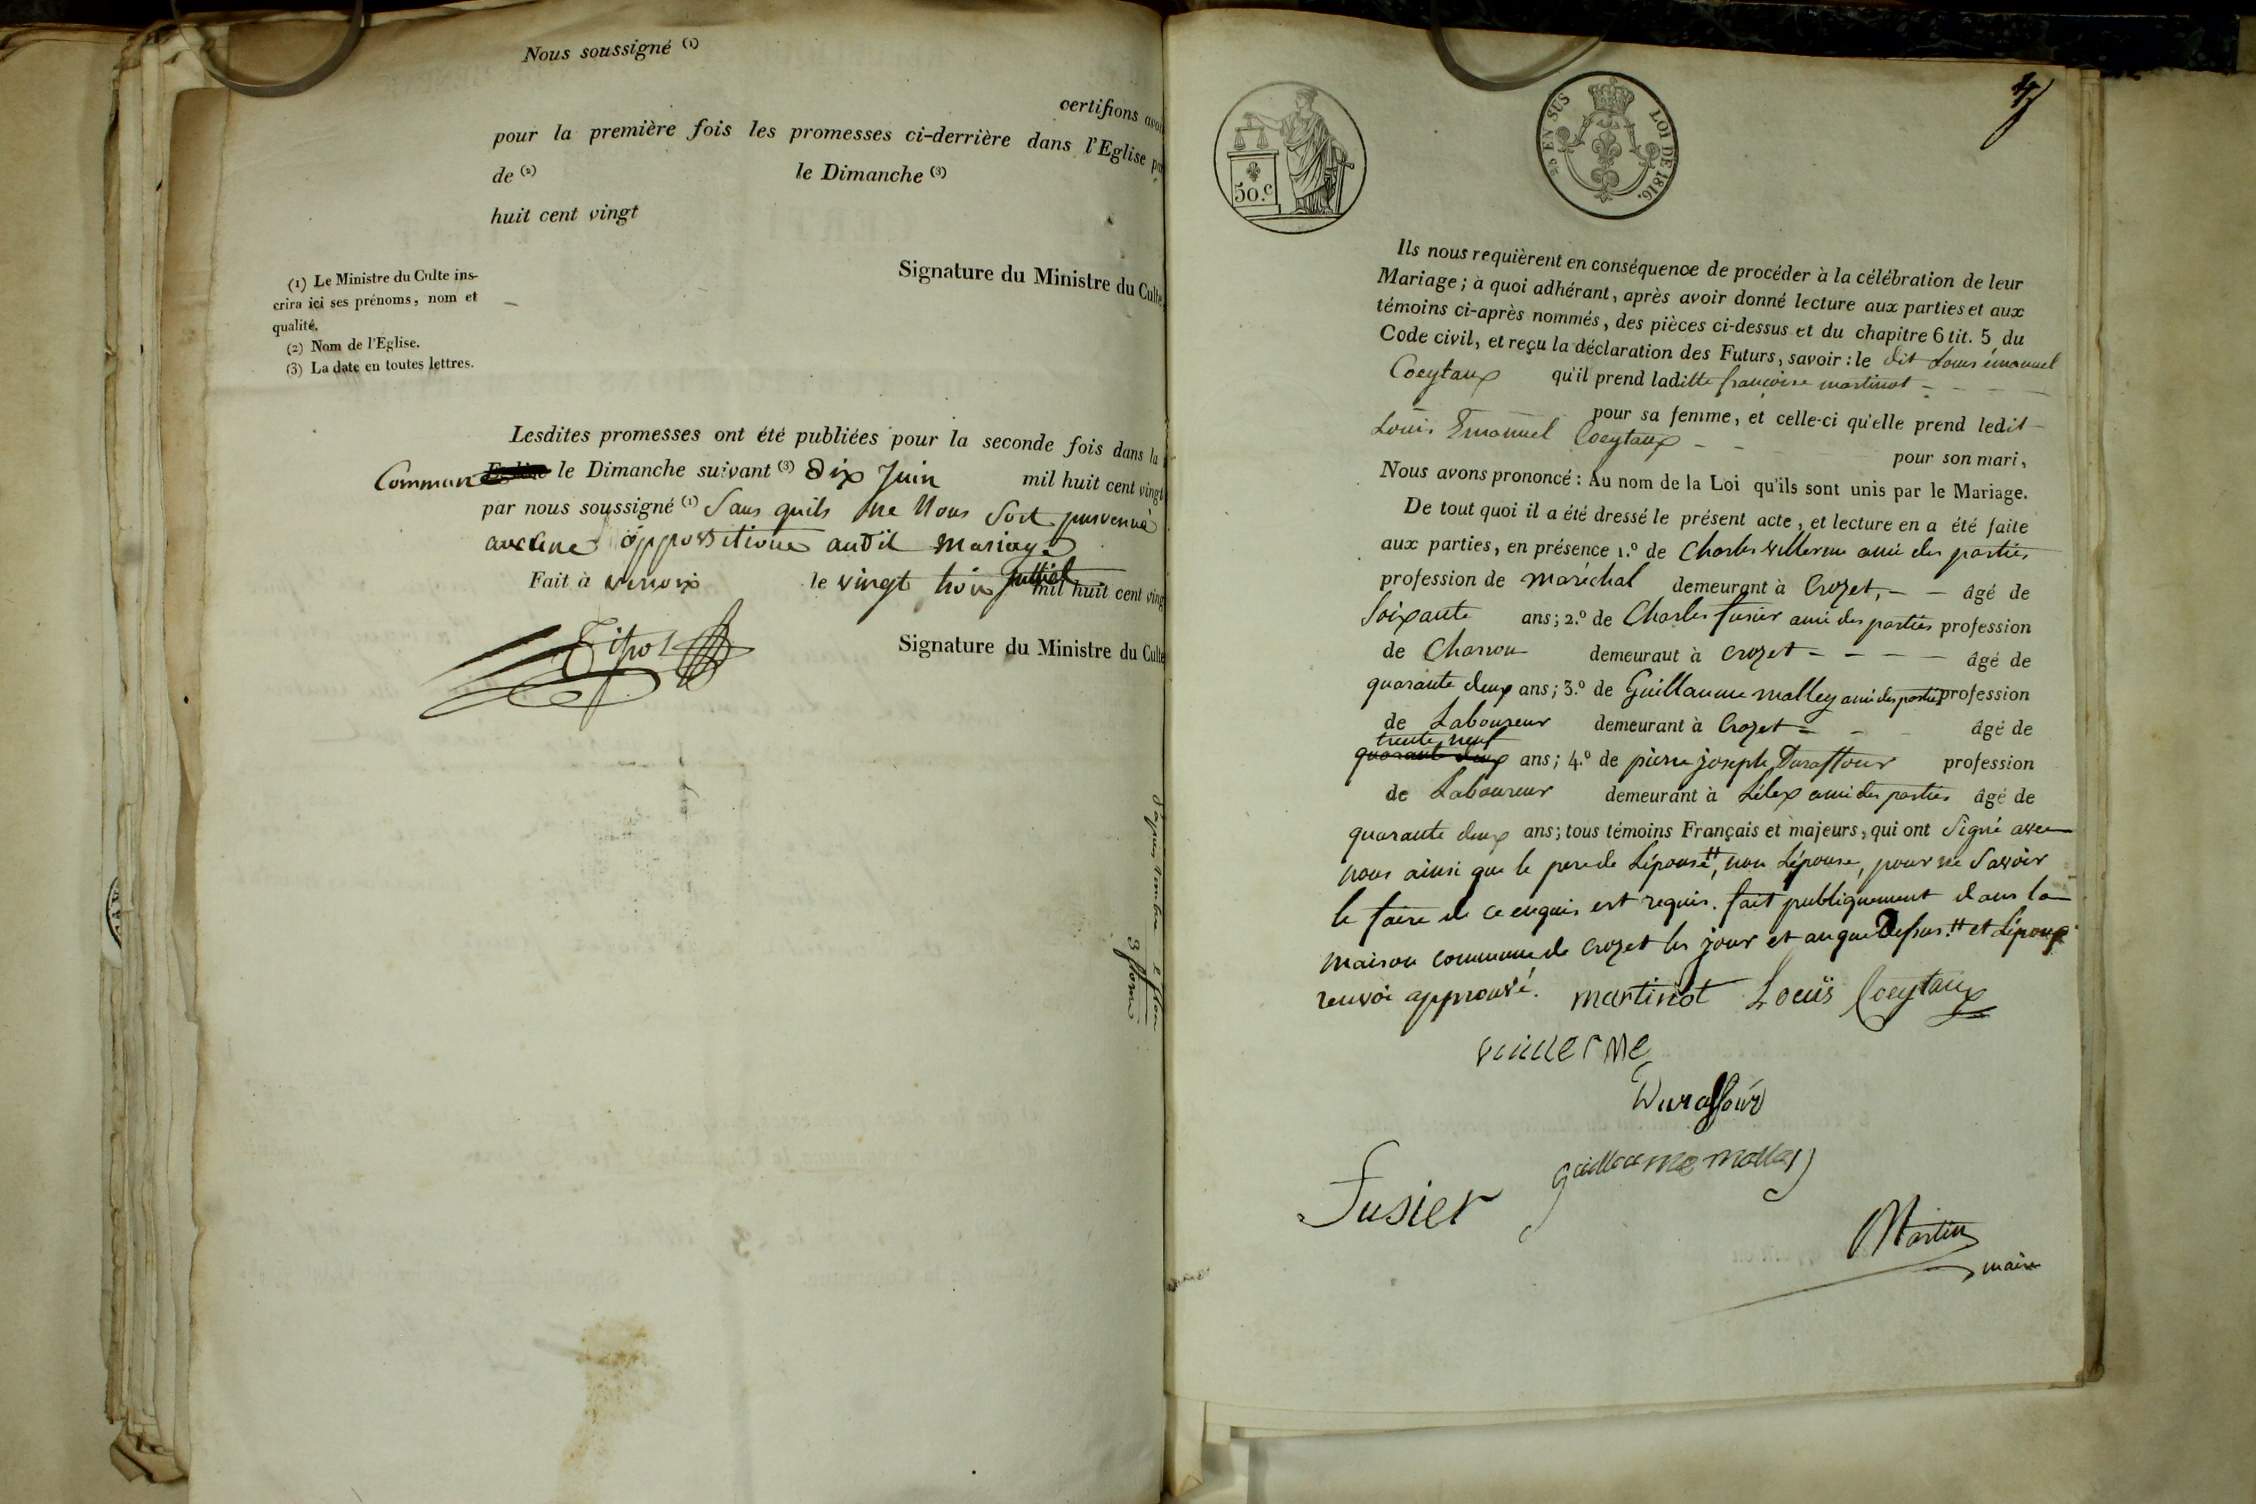 Nous soussigné (1)
certifions avoi
pour la première fois les promesses ci-derrière dans l'Eglise pa
de (2) le Dimanche (3)
huit cent vingt
Signature du Ministre du Culte
(1) Le Ministre du Culte ins-
crira ici ses prénoms, nom et
qualité.
(2) Nom de l'Eglise.
(3) La date en toutes lettres.
Lesdites promesses ont été publiées pour la seconde fois dans la
Commune Eglise le Dimanche suivant (3) dix Juin mil huit cent vingt
par nous soussigné (1) Sans quils ne Nous Soit parvenue
aucune oppositione audit mariage
Fait à versoix le vingt trois Juilliet mil huit cent ving
Signature du Ministre du Culte
3 florins
50.c
25 EN SUS LOI DE 1816.
Ils nous requièrent en conséquence de procéder à la célébration de leur
Mariage; à quoi adhérant, après avoir donné lecture aux parties et aux
témoins ci-après nommés, des pièces ci-dessus et du chapitre 6 tit. 5 du
Code civil, et reçu la déclaration des Futurs, savoir : le dit Louis émanuel
Coeytaux qu'il prend laditte françoise martinot - - - -
pour sa femme, et celle-ci qu'elle prend ledit -
Louis Emanuel Coeytaux - - pour son mari,
Nous avons prononcé : Au nom de la Loi qu'ils sont unis par le Mariage.
De tout quoi il a été dressé le présent acte, et lecture en a été faite
aux parties, en présence 1.º de Charles villerme ami des parties
profession de maréchal demeurant à Crozet, - - âgé de
Soixante ans; 2.º de Charles fusier ami des parties profession
de Charron demeurant à crozet - - - - âgé de
quarante deux ans; 3.º de Guillaume malley ami des parties profession
de Laboureur demeurant à Crozet - - - âgé de
trente neuf
quarante deux ans; 4.º de pierre joseph Duraffour profession
de Laboureur demeurant à Lélex ami des parties âgé de
quarante deux ans; tous témoins Français et majeurs, qui ont Signé avec
nous ainsi que le pere de Lépouse ", non Lépouse, pour ne Savoir
le faire de ce enquis est requis. fait publiquement dans la
maison commune de crozet les jour et an que Dessus. " et Lépoux
renvoi approuvé. martinot Loüis Coeytaux
vuillerme
Duraffour
guillaume malley
Fusier
Martin
maire